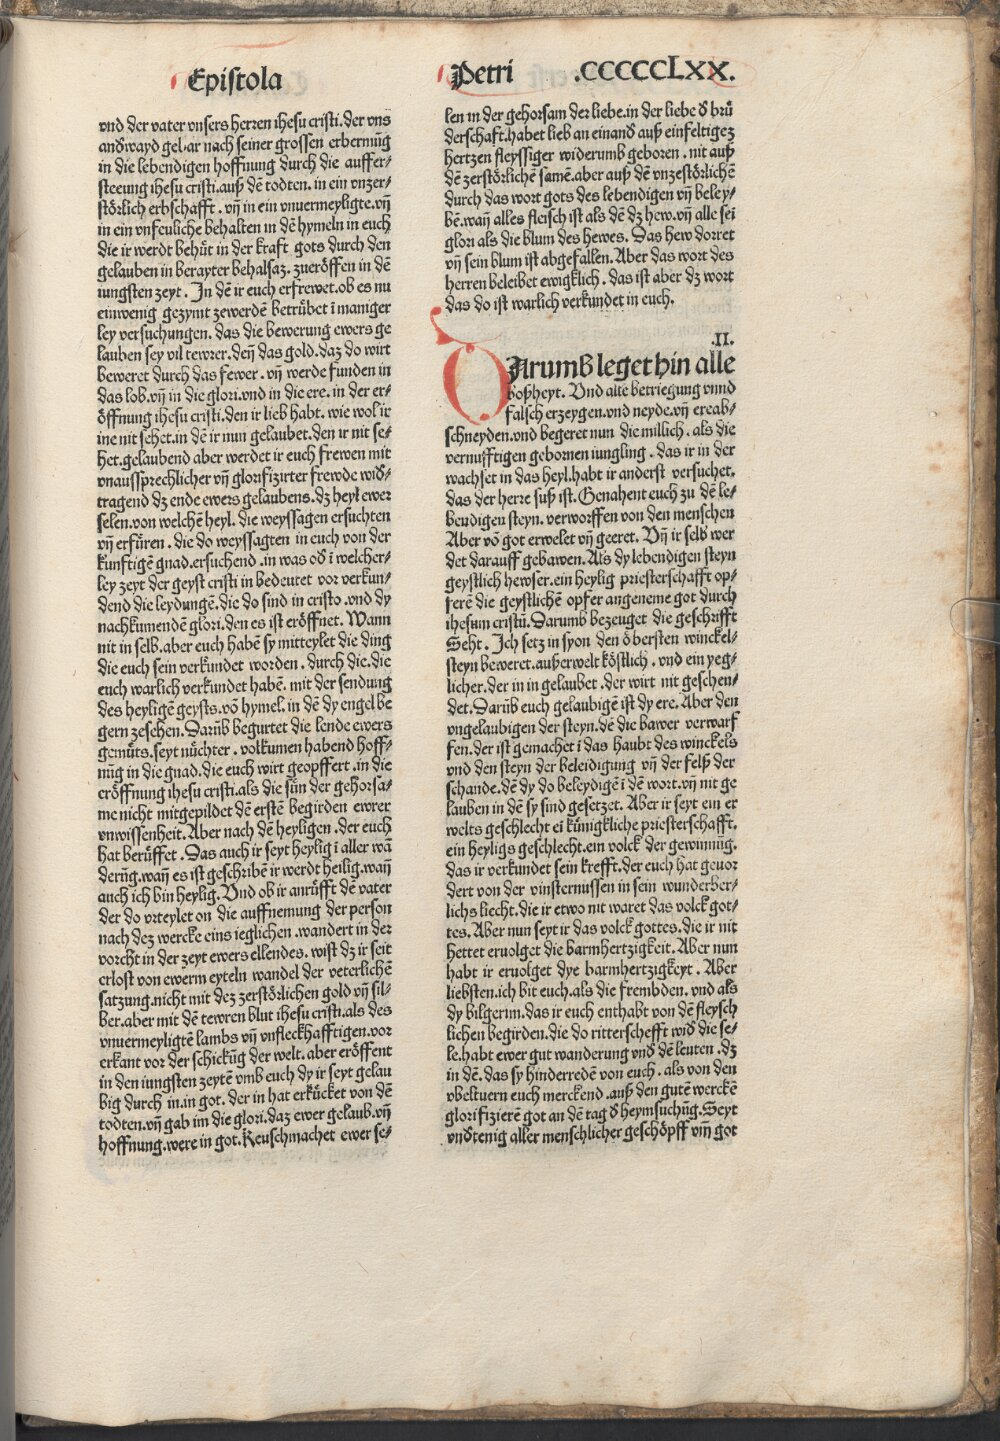 Epistola
Petri .CCCCCCLXX.
vnd der vater vnsers herren ihesu cristi.der vns
anďwayd gebar nach seiner grossen erbermūg
in die lebendigen hoffnung durch die auffer⸗
steeung ihesu cristi.auß dē todten.in ein vnzer⸗
störlich erbschafft. vn̄ in ein vnuermeyligte.vn̄
in ein vnfeuliche behalten in dē hymeln in euch
die ir werdt behüt in der kraft gots durch den
gelauben in berayter behalsaʒ. zueröffen in dē
iungsten zeyt. In dē ir euch erfrewet.ob es nu
einwenig gezymt zewerdē betrübet ī maniger
ley versuchungen. das die bewerung ewers ge
lauben sey vil tewrer.den̄ das gold.daz do wirt
beweret durch das fewer. vn̄ werde funden in
das lob.vn̄ in die glori.vnd in die ere.in der er⸗
öffnung ihesu cristi.den ir lieb habt. wie wol ir
ine nit sehet.in dē ir nun gelaubet.den ir nit se⸗
het.gelaubend aber werdet ir euch frewen mit
vnaussprechlicher vn̄ glorifizirter frewde wiď⸗
tragend dʒ ende ewers gelaubens.dʒ heyl ewer
selen.von welchē heyl. die weyssagen ersuchten
vn̄ erfüren. die do weyssagten in euch von der
künftigē gnad.ersuchend.in was oď ī welcher⸗
ley zeyt der geyst cristi in bedeutet vor verkun⸗
dend die leydungē.die do sind in cristo.vnd dy
nachkumendē glori.den es ist eröffnet. Wann
nit in selb.aber euch habē sy mitteylet die ding
die euch sein verkundet worden. durch die.die
euch warlich verkundet habē. mit der sendung
des heyligē geysts.vō hymel.in dē dy engel be
gern zesehen.Darūb begurtet die lende ewers
gemüts.seyt nüchter. volkumen habend hoff⸗
nūg in die gnad.die euch wirt geopffert.in die
eröffnung ihesu cristi.als die sün der gehorsa⸗
me nicht mitgepildet dē erstē begirden ewrer
vnwissenheit. Aber nach dē heyligen.der euch
hat berüffet. Das auch ir seyt heylig ī aller wā
derūg.wan̄ es ist geschribē ir werdt heilig.wan̄
auch ich bin heylig. Vnd ob ir anrüfft dē vater
der do vrteylet on die auffnemung der person
nach deʒ wercke eins ieglichen.wandert in der
vorcht in der zeyt ewers ellendes. wist dʒ ir seit
erlost von ewerm eyteln wandel der veterlichē
satzung.nicht mit deʒ zerstörlichen gold vn̄ sil⸗
ber.aber mit dē tewren blut ihesu cristi.als des
vnuermeyligtē lambs vn̄ vnfleckhafftigen.vor
erkant vor der schickūg der welt. aber eröffent
in den iungsten zeytē vmb euch dy ir seyt gelau
big durch in.in got. der in hat erkücket von dē
todten.vn̄ gab im die glori.daz ewer gelaub.vn̄
hoffnung.were in got. Keuschmachet ewer se⸗
len in der gehorsam der liebe.in der liebe ď brü
derschaft.habet lieb an einanď auß einfeltigeʒ
hertzen fleyssiger widerumb geboren. nit auß
dē zerstörlichē samē.aber auß dē vnzestörlichē
durch das wort gots des lebendigen vn̄ beley⸗
bē.wan̄ alles fleisch ist als dē dʒ hew.vn̄ alle sei
glori als die blum des hewes. Das hew dorret
vn̄ sein blum ist abgefallen. Aber das wort des
herren beleibet ewigklich. das ist aber dʒ wort
das do ist warlich verkundet in euch.
.II.
DArumb leget hin alle
boßheyt. Vnd alle betriegung vnnd
falsch erzeygen.vnd neyde.vn̄ ereab⸗
schneyden.vnd begeret nun die millich. als die
vernufftigen gebornen iungling. das ir in der
wachset in das heyl.habt ir anderst versuchet.
das der herre suß ist. Genahent euch zu dē le⸗
bendigen steyn. verworffen von den menschen
Aber vō got erwelet vn̄ geeret. Vn̄ ir selb wer
det darauff gebawen. Als dy lebendigen steyn
geystlich hewser.ein heylig priesterschafft op⸗
ferē die geystlichē opfer angeneme got durch
ihesum cristū.Darumb bezeuget die geschrifft
Seht. Ich setz in syon den öbersten winckel⸗
steyn beweret.außerwelt köstlich. vnd ein yeg⸗
licher.der in in gelaubet.der wirt nit geschen⸗
det.Darūb euch gelaubigē ist dy ere. Aber den
vngelaubigen der steyn.dē die bawer verwarf
fen.der ist gemachet ī das haubt des winckels
vnd den steyn der beleidigung vn̄ der felß der
schande.dē dy do beleydigē ī dē wort.vn̄ nit ge
lauben in dē sy sind gesetzet. Aber ir seyt ein er
welts geschlecht eī künigkliche priesterschafft.
ein heyligs geschlecht.ein volck der gewinnūg.
das ir verkundet sein krefft.der euch hat geuor
dert von der vinsternussen in sein wunderber⸗
lichs liecht.die ir etwo nit waret das volck got⸗
tes. Aber nun seyt ir das volck gottes.die ir nit
hettet eruolget die barmhertzigkeit. Aber nun
habt ir eruolget dye barmhertzigkeyt. Aber
liebsten.ich bit euch.als die frembden. vnd als
dy bilgerim.das ir euch enthabt von dē fleysch
lichen begirden.die do ritterschefft wiď die se⸗
le.habt ewer gut wanderung vnď dē leuten.dʒ
in dē.das sy hinderredē von euch. als von den
vbeltuern euch merckend.auß den gutē werckē
glorifizierē got an dē tag ď heymsuchūg.Seyt
vnďtenig aller menschlicher geschöpff vm̄ got